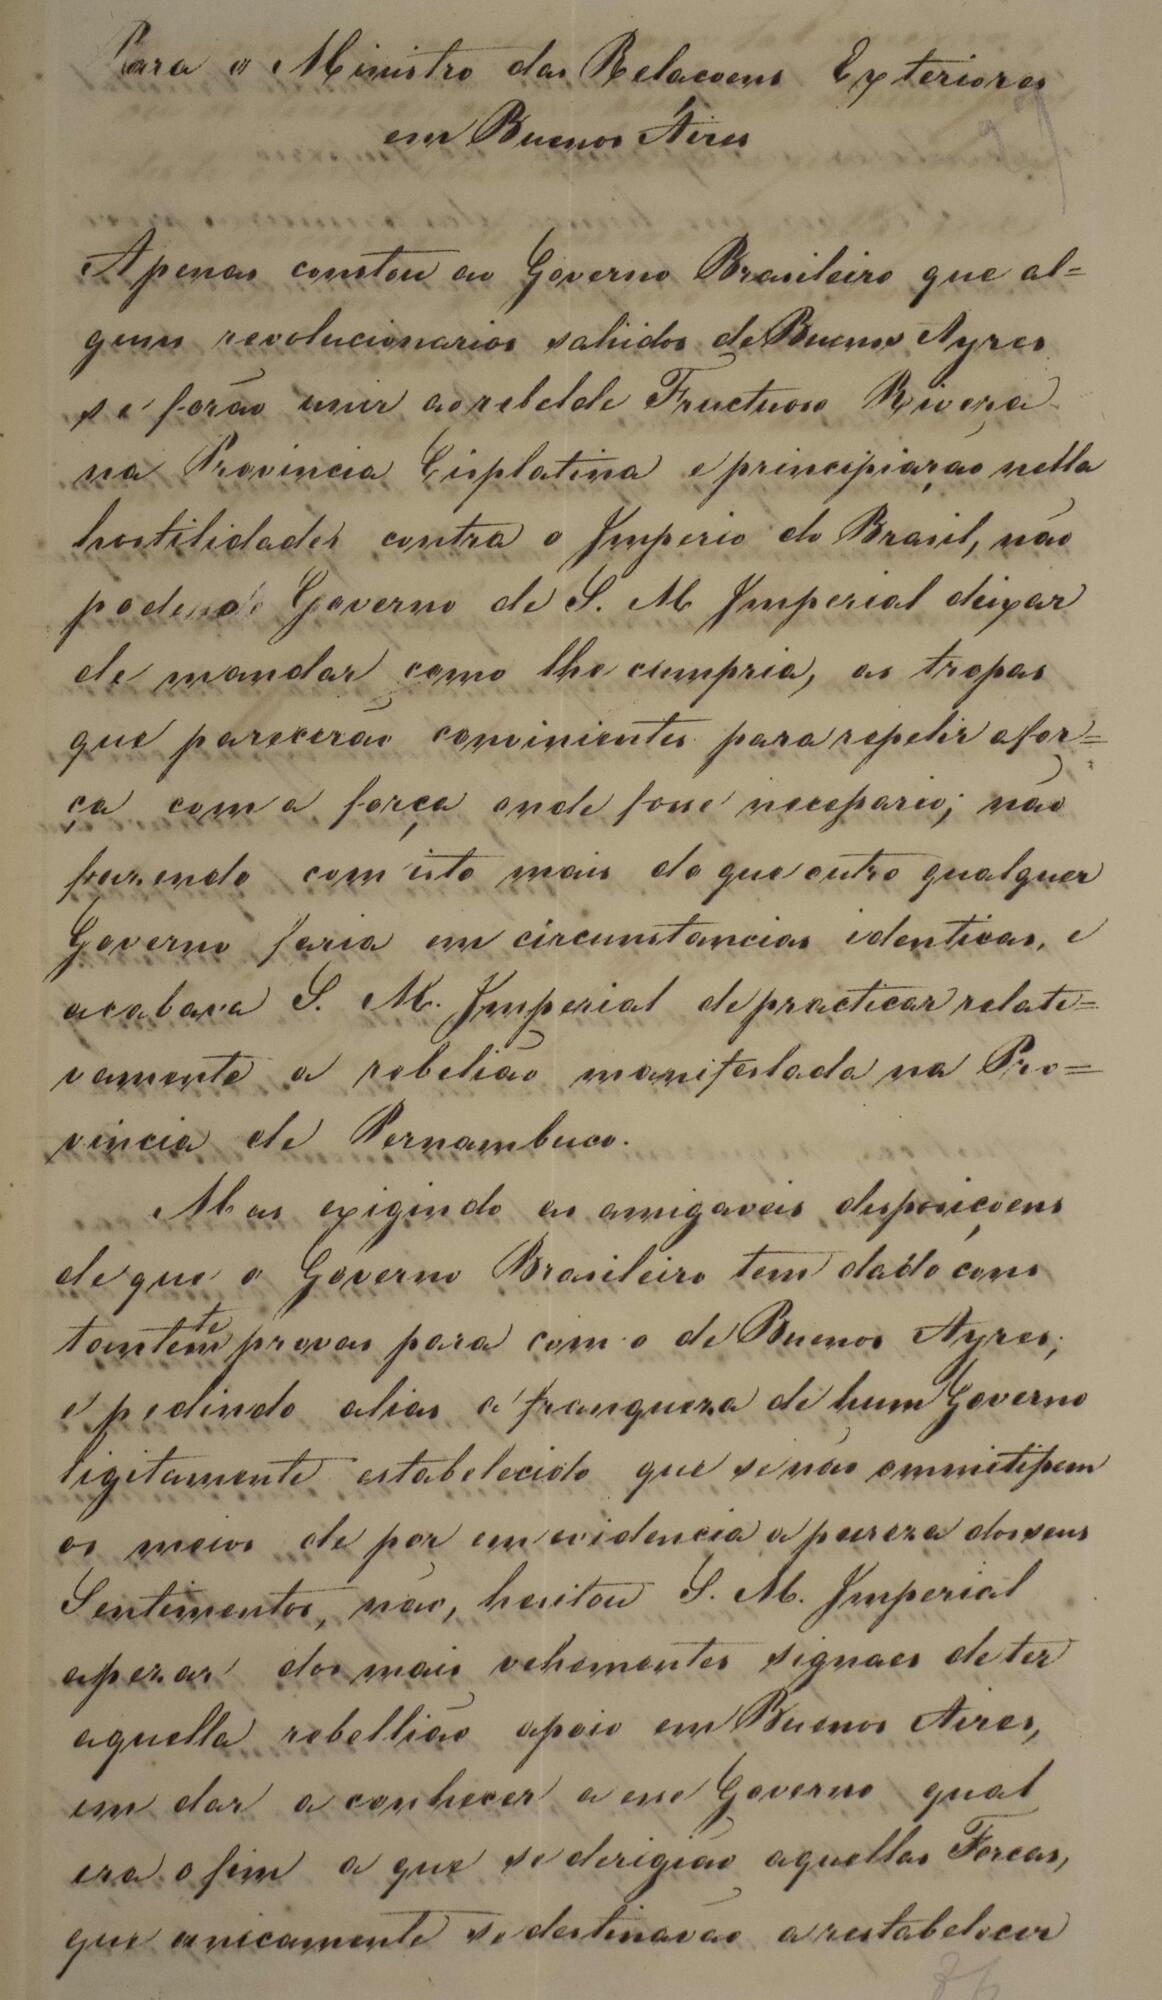 Para o Ministro das Relacoens Exteriores
em Buenos Áires
Apenas constou ao Governo Brasileiro que al=
guns revolucionarios sahidos de Buenos Ayres
se forão unir ao rebelde Fructuoso Rivera
na Provincia Cisplatina e principiarão nella
hostilidades contra o Imperio do Brasil, não
podendo Governo de S. M Imperial deixar
de mandar como lhe cumpria, as tropas
que parecerão convinientes para repelir a for=
ça com a força onde fosse necessario; não
fazendo com isto mais do que outro qualquer
Governo faria em circunstancias identicas, e
acabava S. M. Imperial de practicar relate=
vamente a rebelião manifestada na Pro=
vincia de Pernambuco.
Mas exigindo as amigaveis disposiçoens
de que o Governo Brasileiro tem dado cons
tantemte provas para com o de Buenos Ayres;
e pedindo alias a franqueza de hum Governo
ligitamente estabelecido que se não ommitissem
os meios de por em evidencia a pureza dos seus
Sentimentos, não, hesitou S. M. Imperial
apezar dos mais vehementes signaes de ter
aquella rebellião apoio em Buenos Aires,
em dar a conhecer a esse Governo qual
era o fim a que se derigião aquellas Forcas,
que unicamente se destinavão a restabelecer